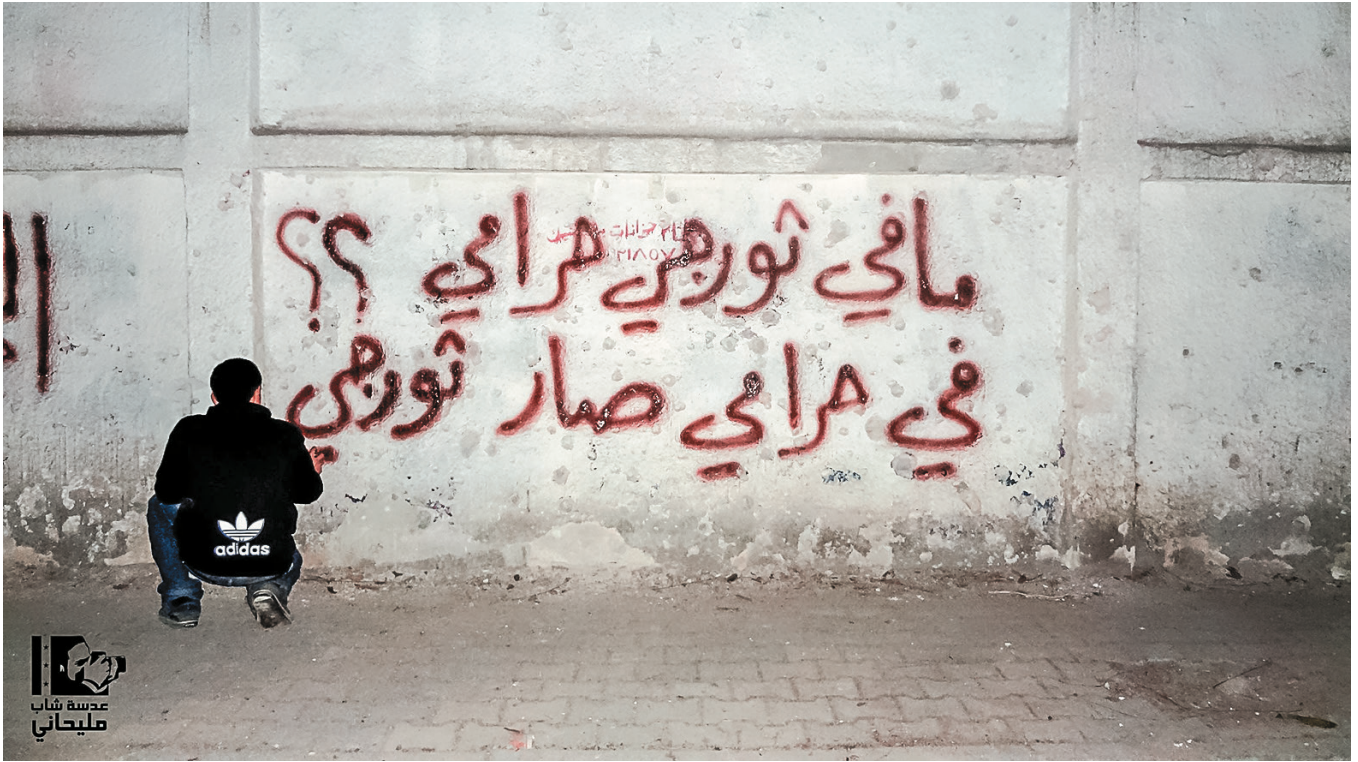 مافي ثورجي حرامي ؟؟
في حرامي صار ثورجي
adidas
عدسة شاب
مليحاني